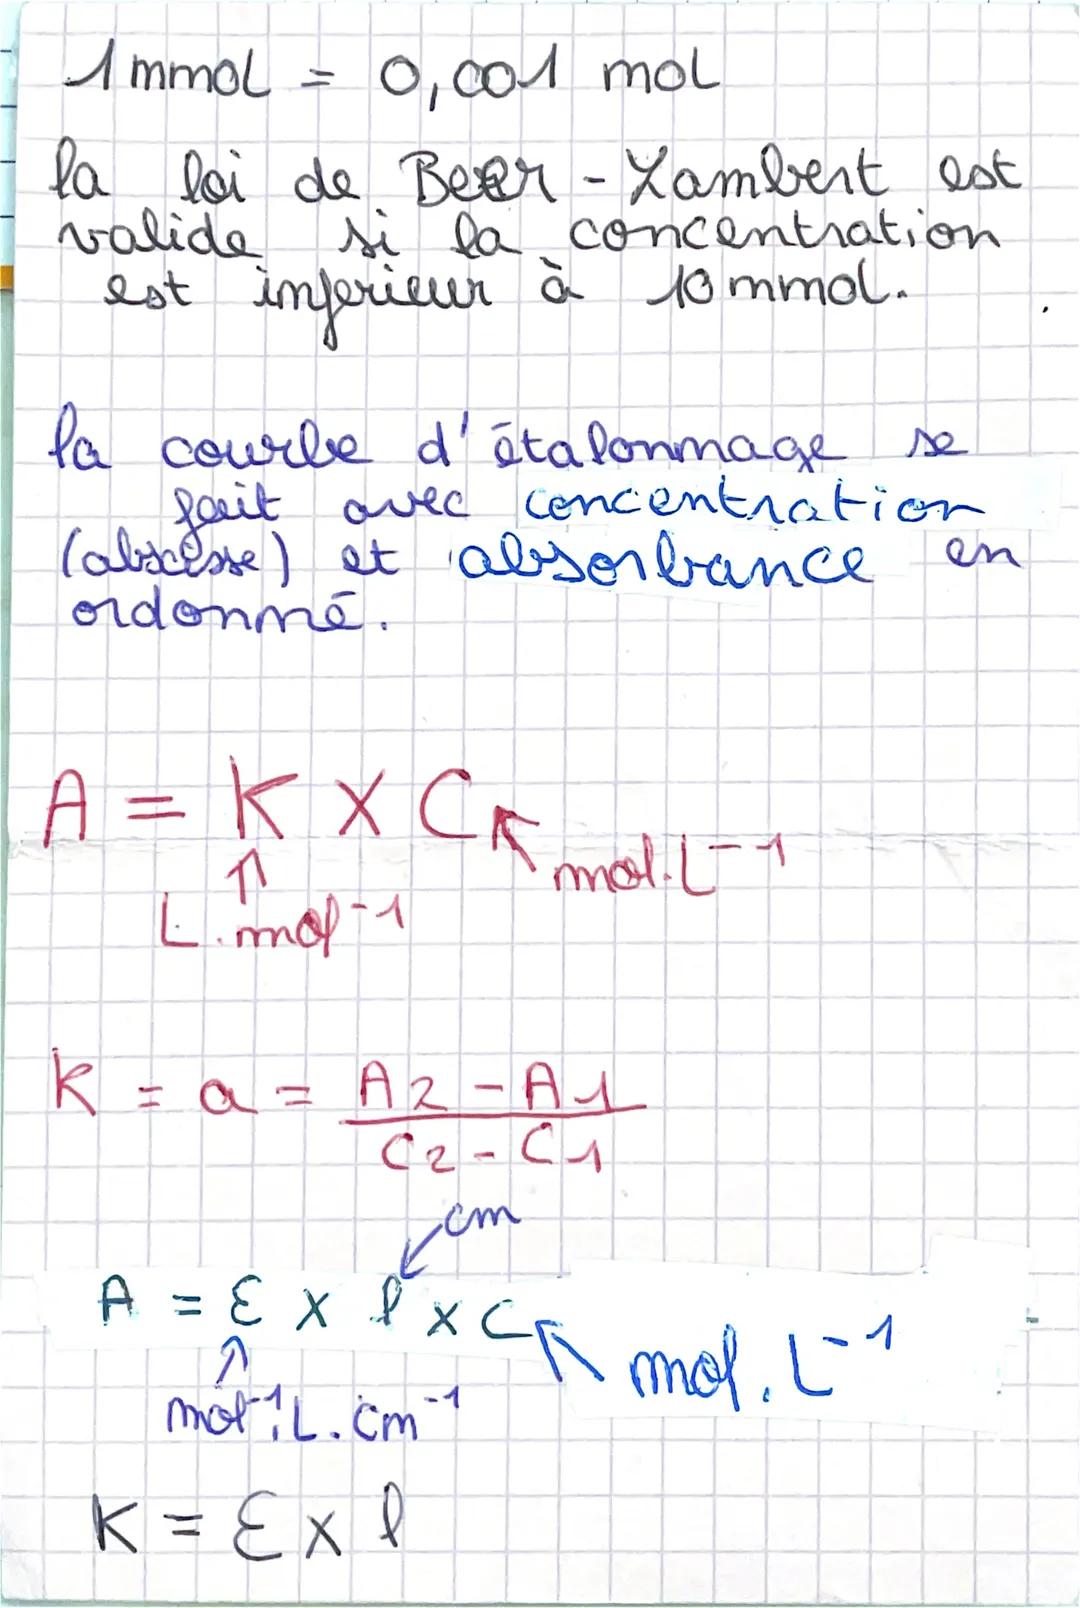 1 mmol = 0,001 mol
la loi de Beer-Lambert est
valide si la concentration
est inferieur à 10 mmol.
la courbe d'étalonnage se
fait avec concentration
(abscisse) et absorbance en
ordonné.
A = K × C ↖ mol.L⁻¹
↑
L.mol⁻¹
K = a = A2 - A1
C2 - C1
cm
A = Ɛ × l × C ↖ mol.L⁻¹
↑
mol⁻¹.L.cm⁻¹
K = Ɛ × l